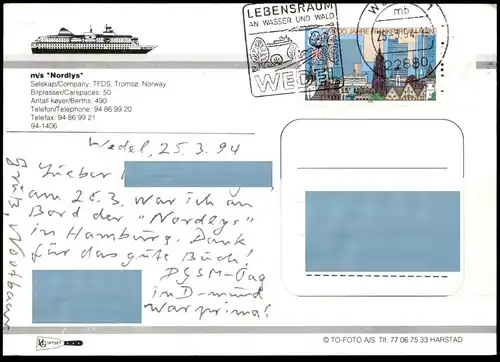 LEBENSRAUM
AN WASSER UND WALD
WEDEL
mb
22880
m/s "Nordlys"
Selskap/Company: TFDS, Tromsø, Norway
Bilplasser/Carspaces: 50
Antall køyer/Berths: 490
Telefon/Telephone: 94 86 99 20
Telefax: 94 86 99 21
94-1406
Wedel, 25.3.94
Lieber
am 20.3. war ich an
Bord der "Nordlys"
in Hamburg. Dank
für das gute Buch!
Tag
in D-mund
war prima!
© TO-FOTO A/S Tlf. 77 06 75 33 HARSTAD